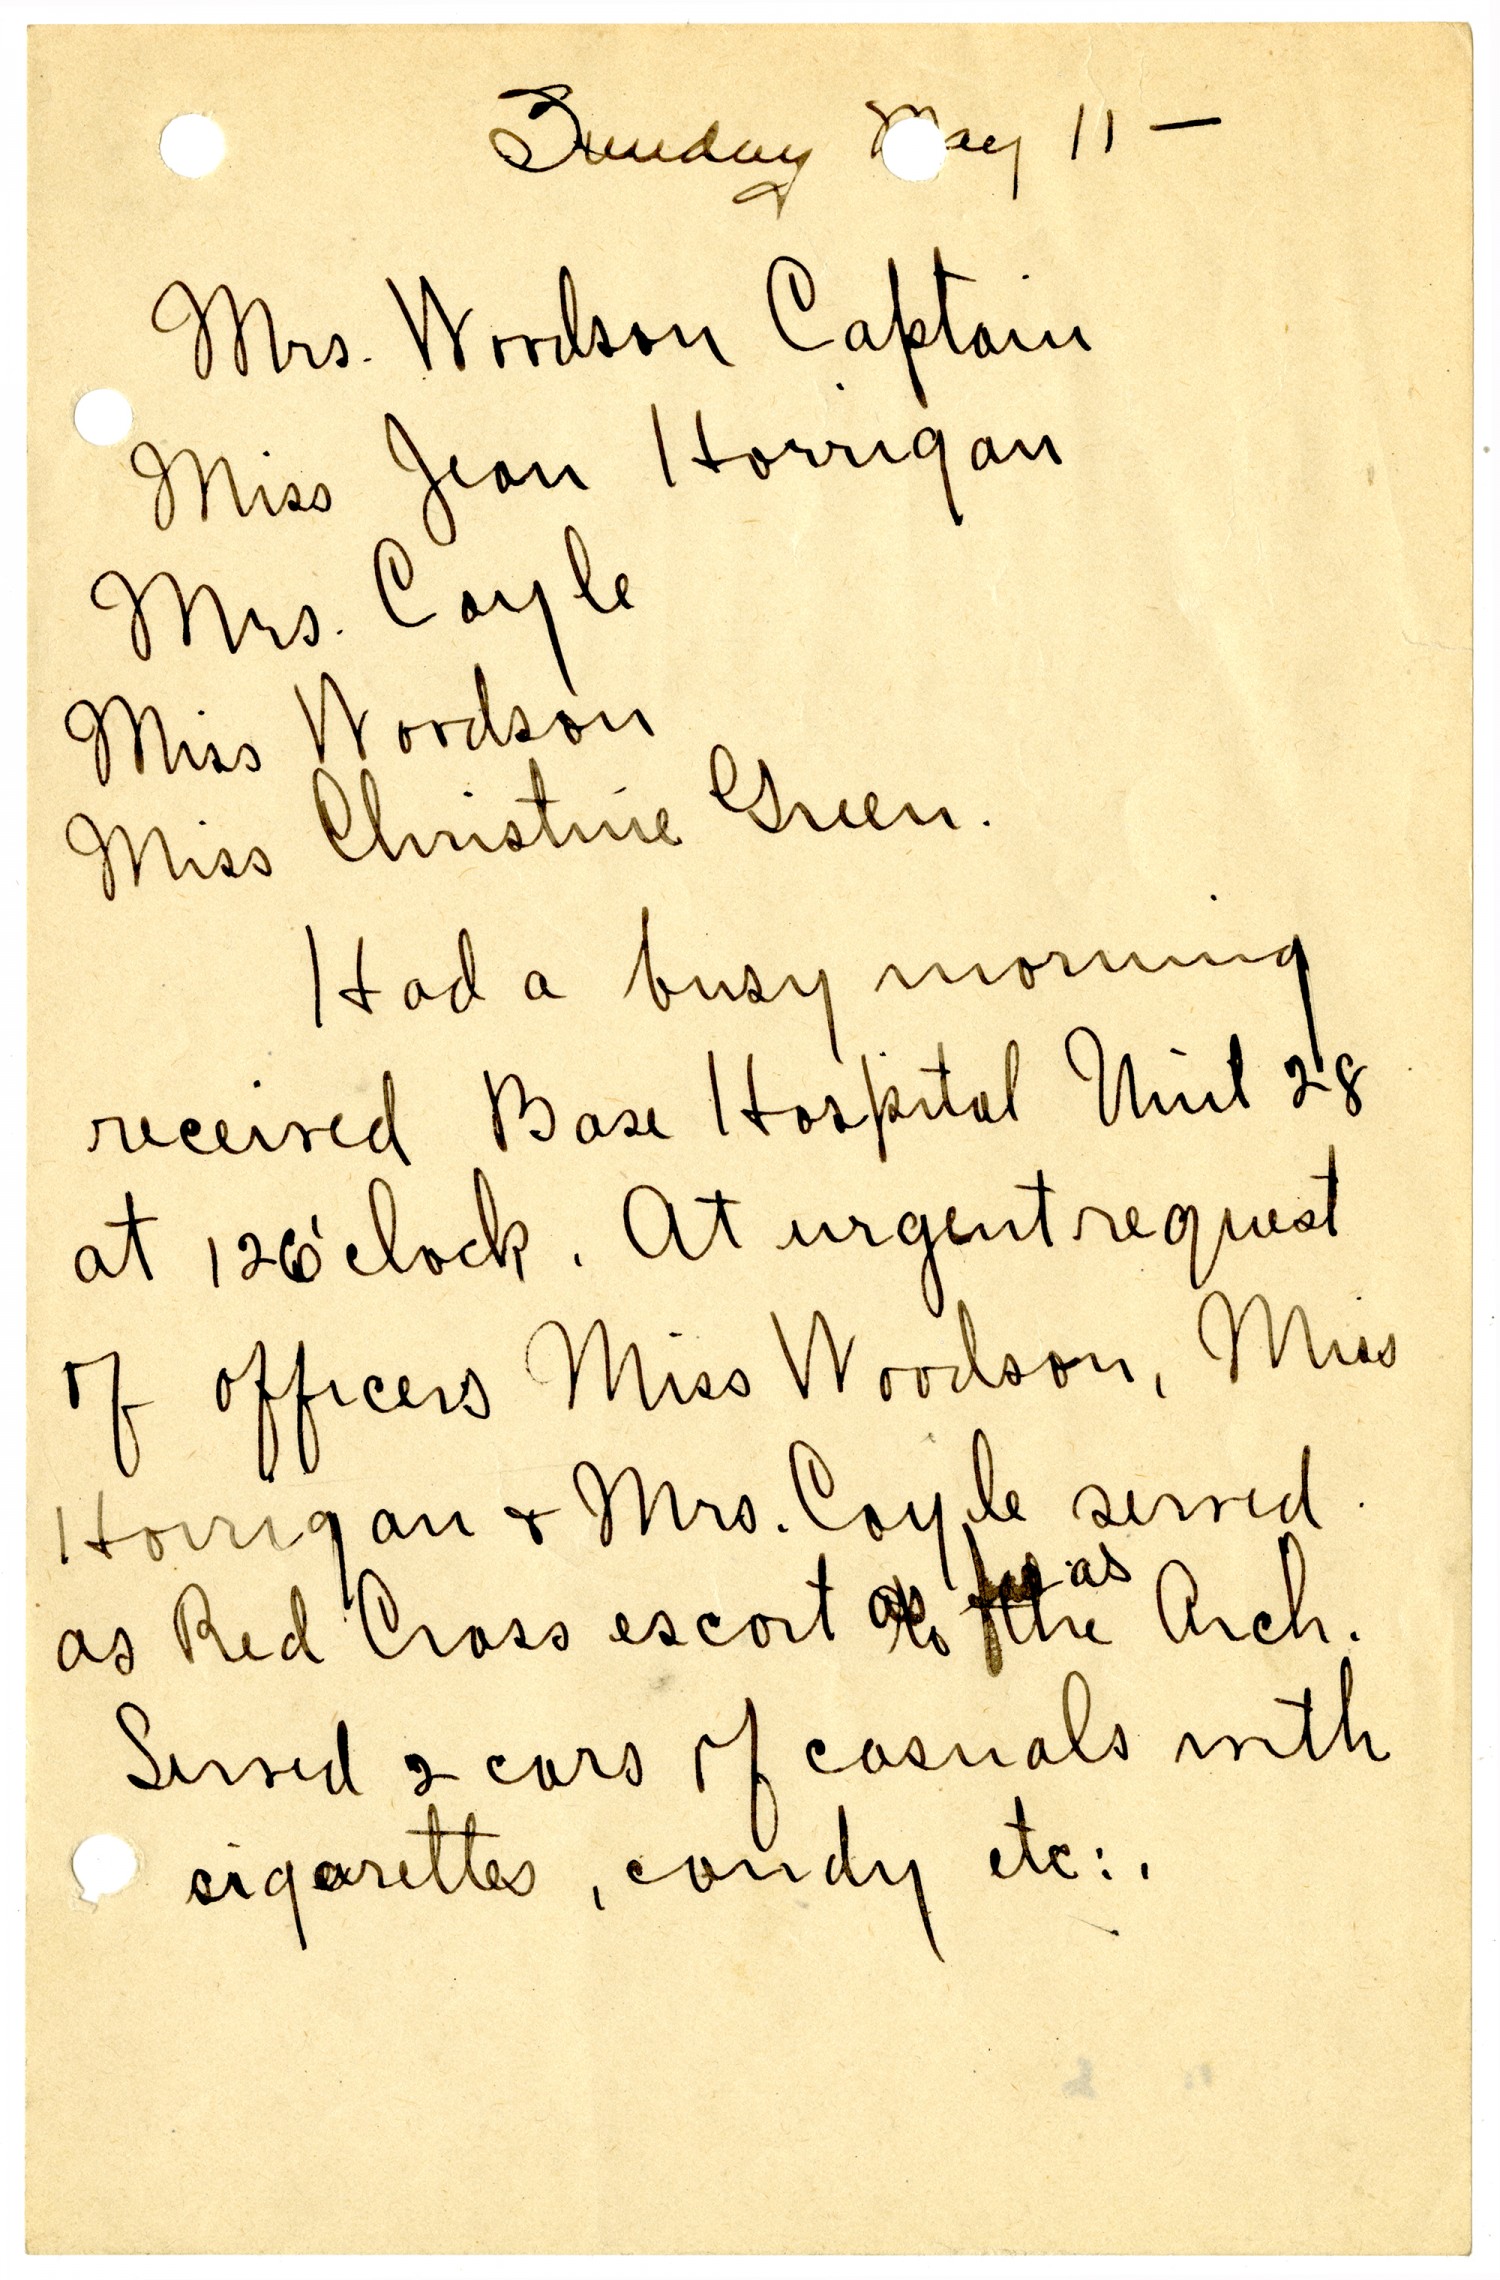 Sunday May 11 —
Mrs. Woodson Captain
Miss Jean Horrigan
Mrs. Coyle
Miss Woodson
Miss Christine Green.
Had a busy morning
received Base Hospital Unit 28
at 12 o'clock. At urgent request
of officers Miss Woodson, Miss
Horrigan & Mrs. Coyle served
as Red Cross escort as the as Arch.
Served 2 cars of casuals with
cigarettes, candy etc:.